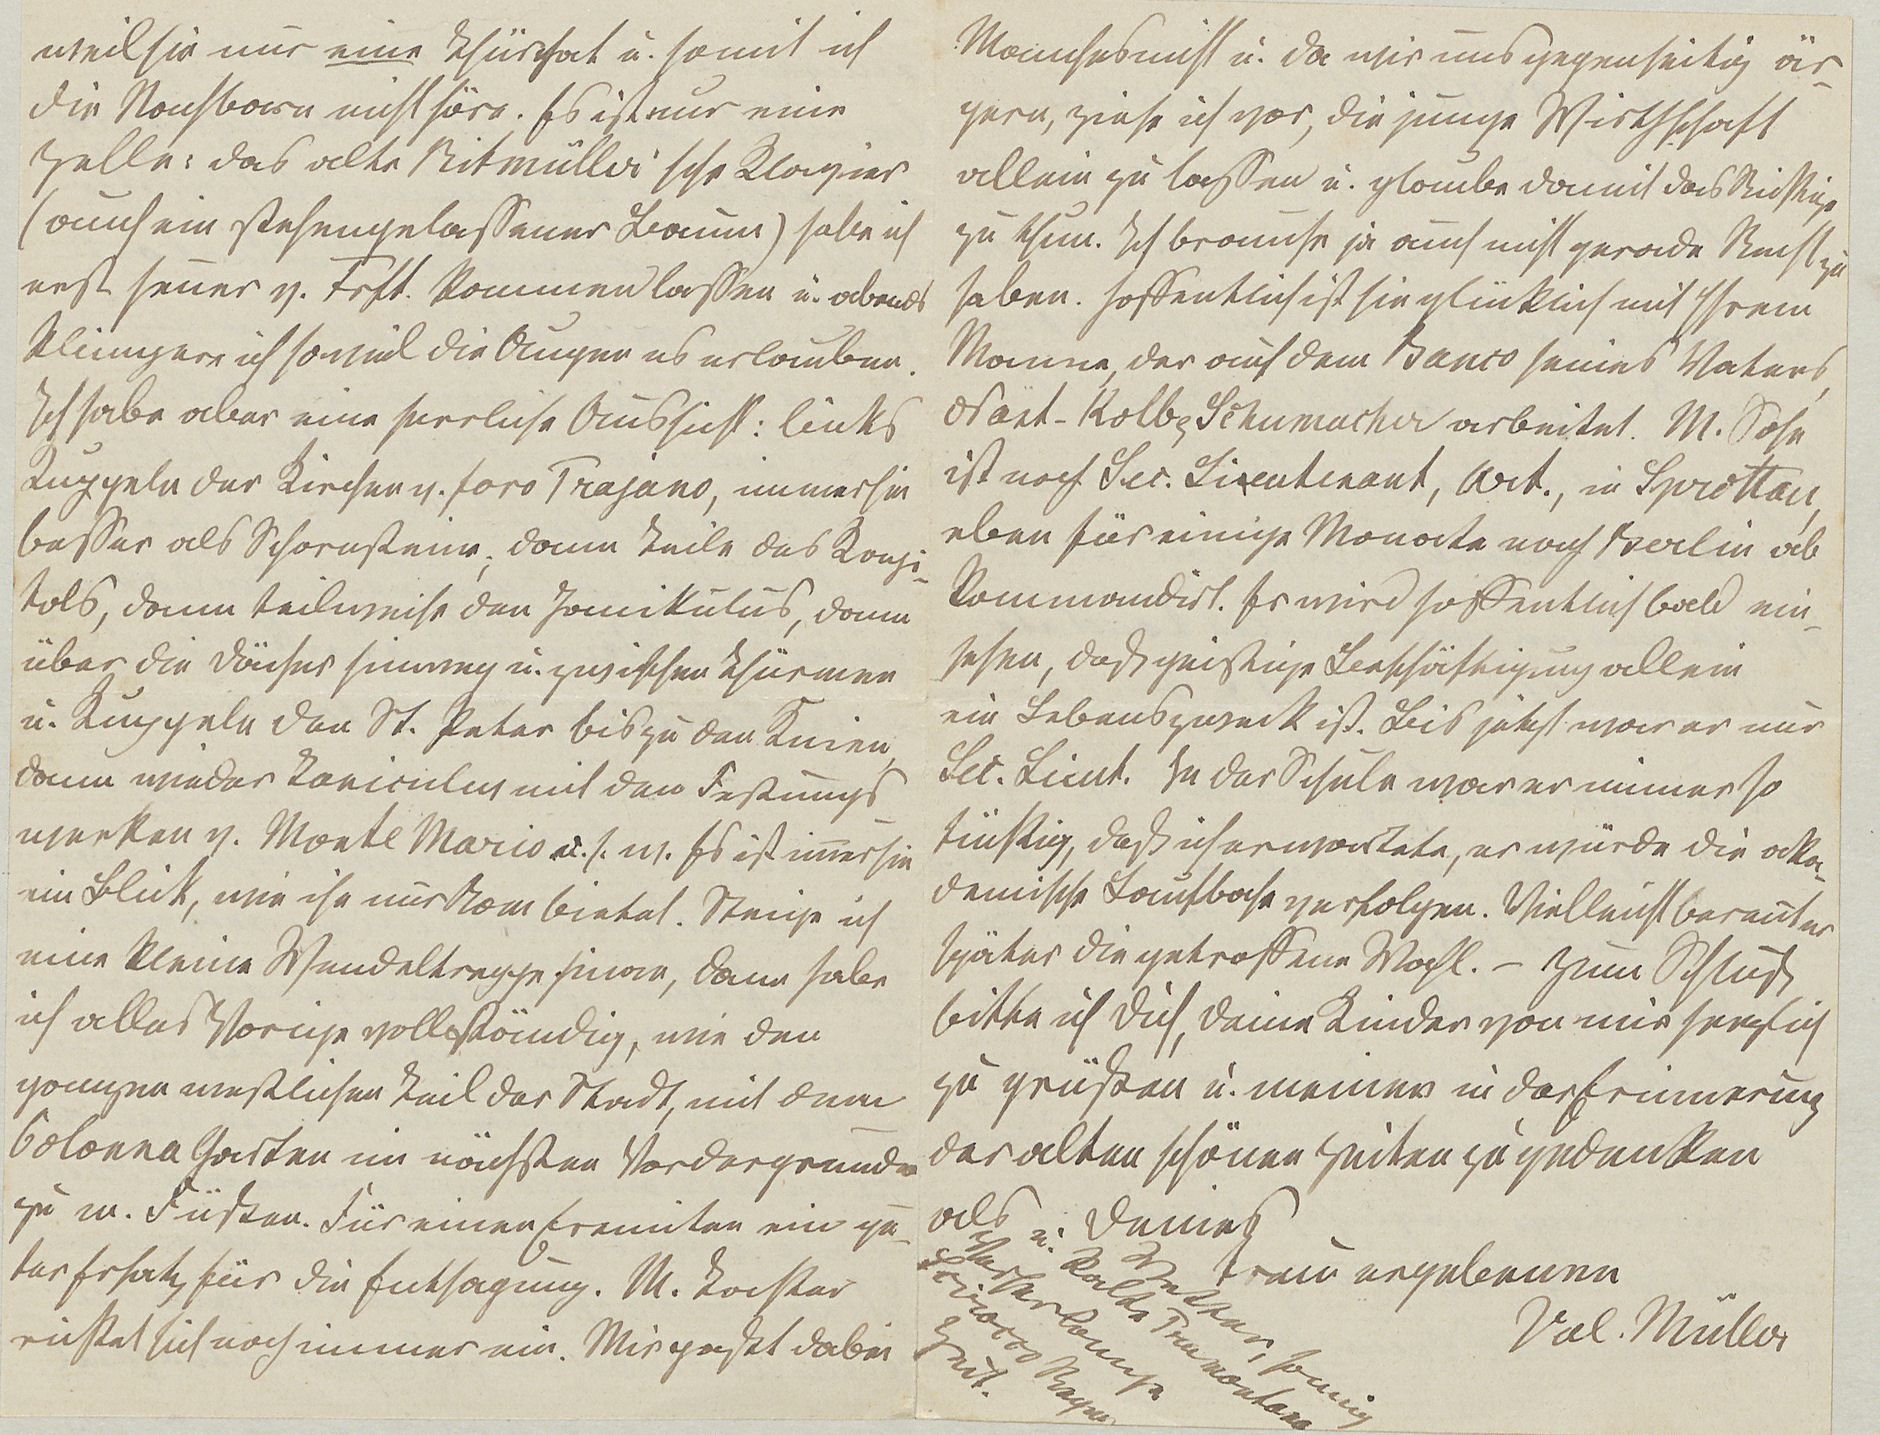 weil sie nur eine Thür hat u. somit ich
die Nachbarn nicht höre. Es ist nur eine
Zelle: das alte Ritmüller'sche Klavier
(auch ein stehengelassener Baum) habe ich
erst heuer v. Frft. kommen lassen u. abends
klimpere ich soviel die Augen es erlauben.
Ich habe aber eine herrliche Aussicht: links
Kuppeln der Kirchen v. foro Trajano, immerhin
besser als Schornsteine, dann Teile des Kapi-
tols, dann teilweise den Janikulus, dann
über die Dächer hinweg u. zwischen Thürmen
u. Kuppeln den St. Peter bis zu den Knien,
dann wieder Janiculus mit den Festungs
werken v. Monte Mario u. s. w. Es ist immerhin
ein Blick, wie ihn nur Rom bietet. Steige ich
eine kleine Wendeltreppe hinan, dann habe
ich alles Vorige vollständig, wie den
ganzen westlichen Teil der Stadt, mit dem
Colonna Garten im nächsten Vordergrunde
zu m. Füßen. Für einen Eremiten ein gu-
ter Ersatz für die Entsagung. M. Tochter
richtet sich noch immer ein. Mir paßt dabei
Manches nicht u. da wir uns gegenseitig är-
gern, ziehe ich vor, die junge Wirthschaft
allein zu lassen u. glaube damit das Richtige
zu thun. Ich brauche ja auch nicht gerade Recht zu
haben. Hoffentlich ist sie glücklich mit ihrem
Manne, der auf dem Banco seines Vaters,
Nast-Kolb & Schumacher arbeitet. M. Sohn
ist noch Sec. Lieutenant, Art., in Sprottau,
eben für einige Monate nach Berlin ab
kommandirt. Er wird hoffentlich bald ein-
sehen, daß geistige Beschäftigung allein
ein Lebenszweck ist. Bis jetzt war er nur
Sec. Lieut. In der Schule war er immer so
tüchtig, daß ich erwartete, er würde die aka-
demische Laufbahn verfolgen. Vielleicht bereut er
später die getroffene Wahl. – Zum Schluß
bitte ich Dich, Deine Kinder von mir herzlich
zu grüßen u. meiner in der Erinnerung
der alten schönen Zeiten zu gedenken
als Deines
treu ergebenen
Val. Müller
Wetter, sonnig
u. kalte Tramontana
Vorher lange
Scirocco Regen
Zeit.